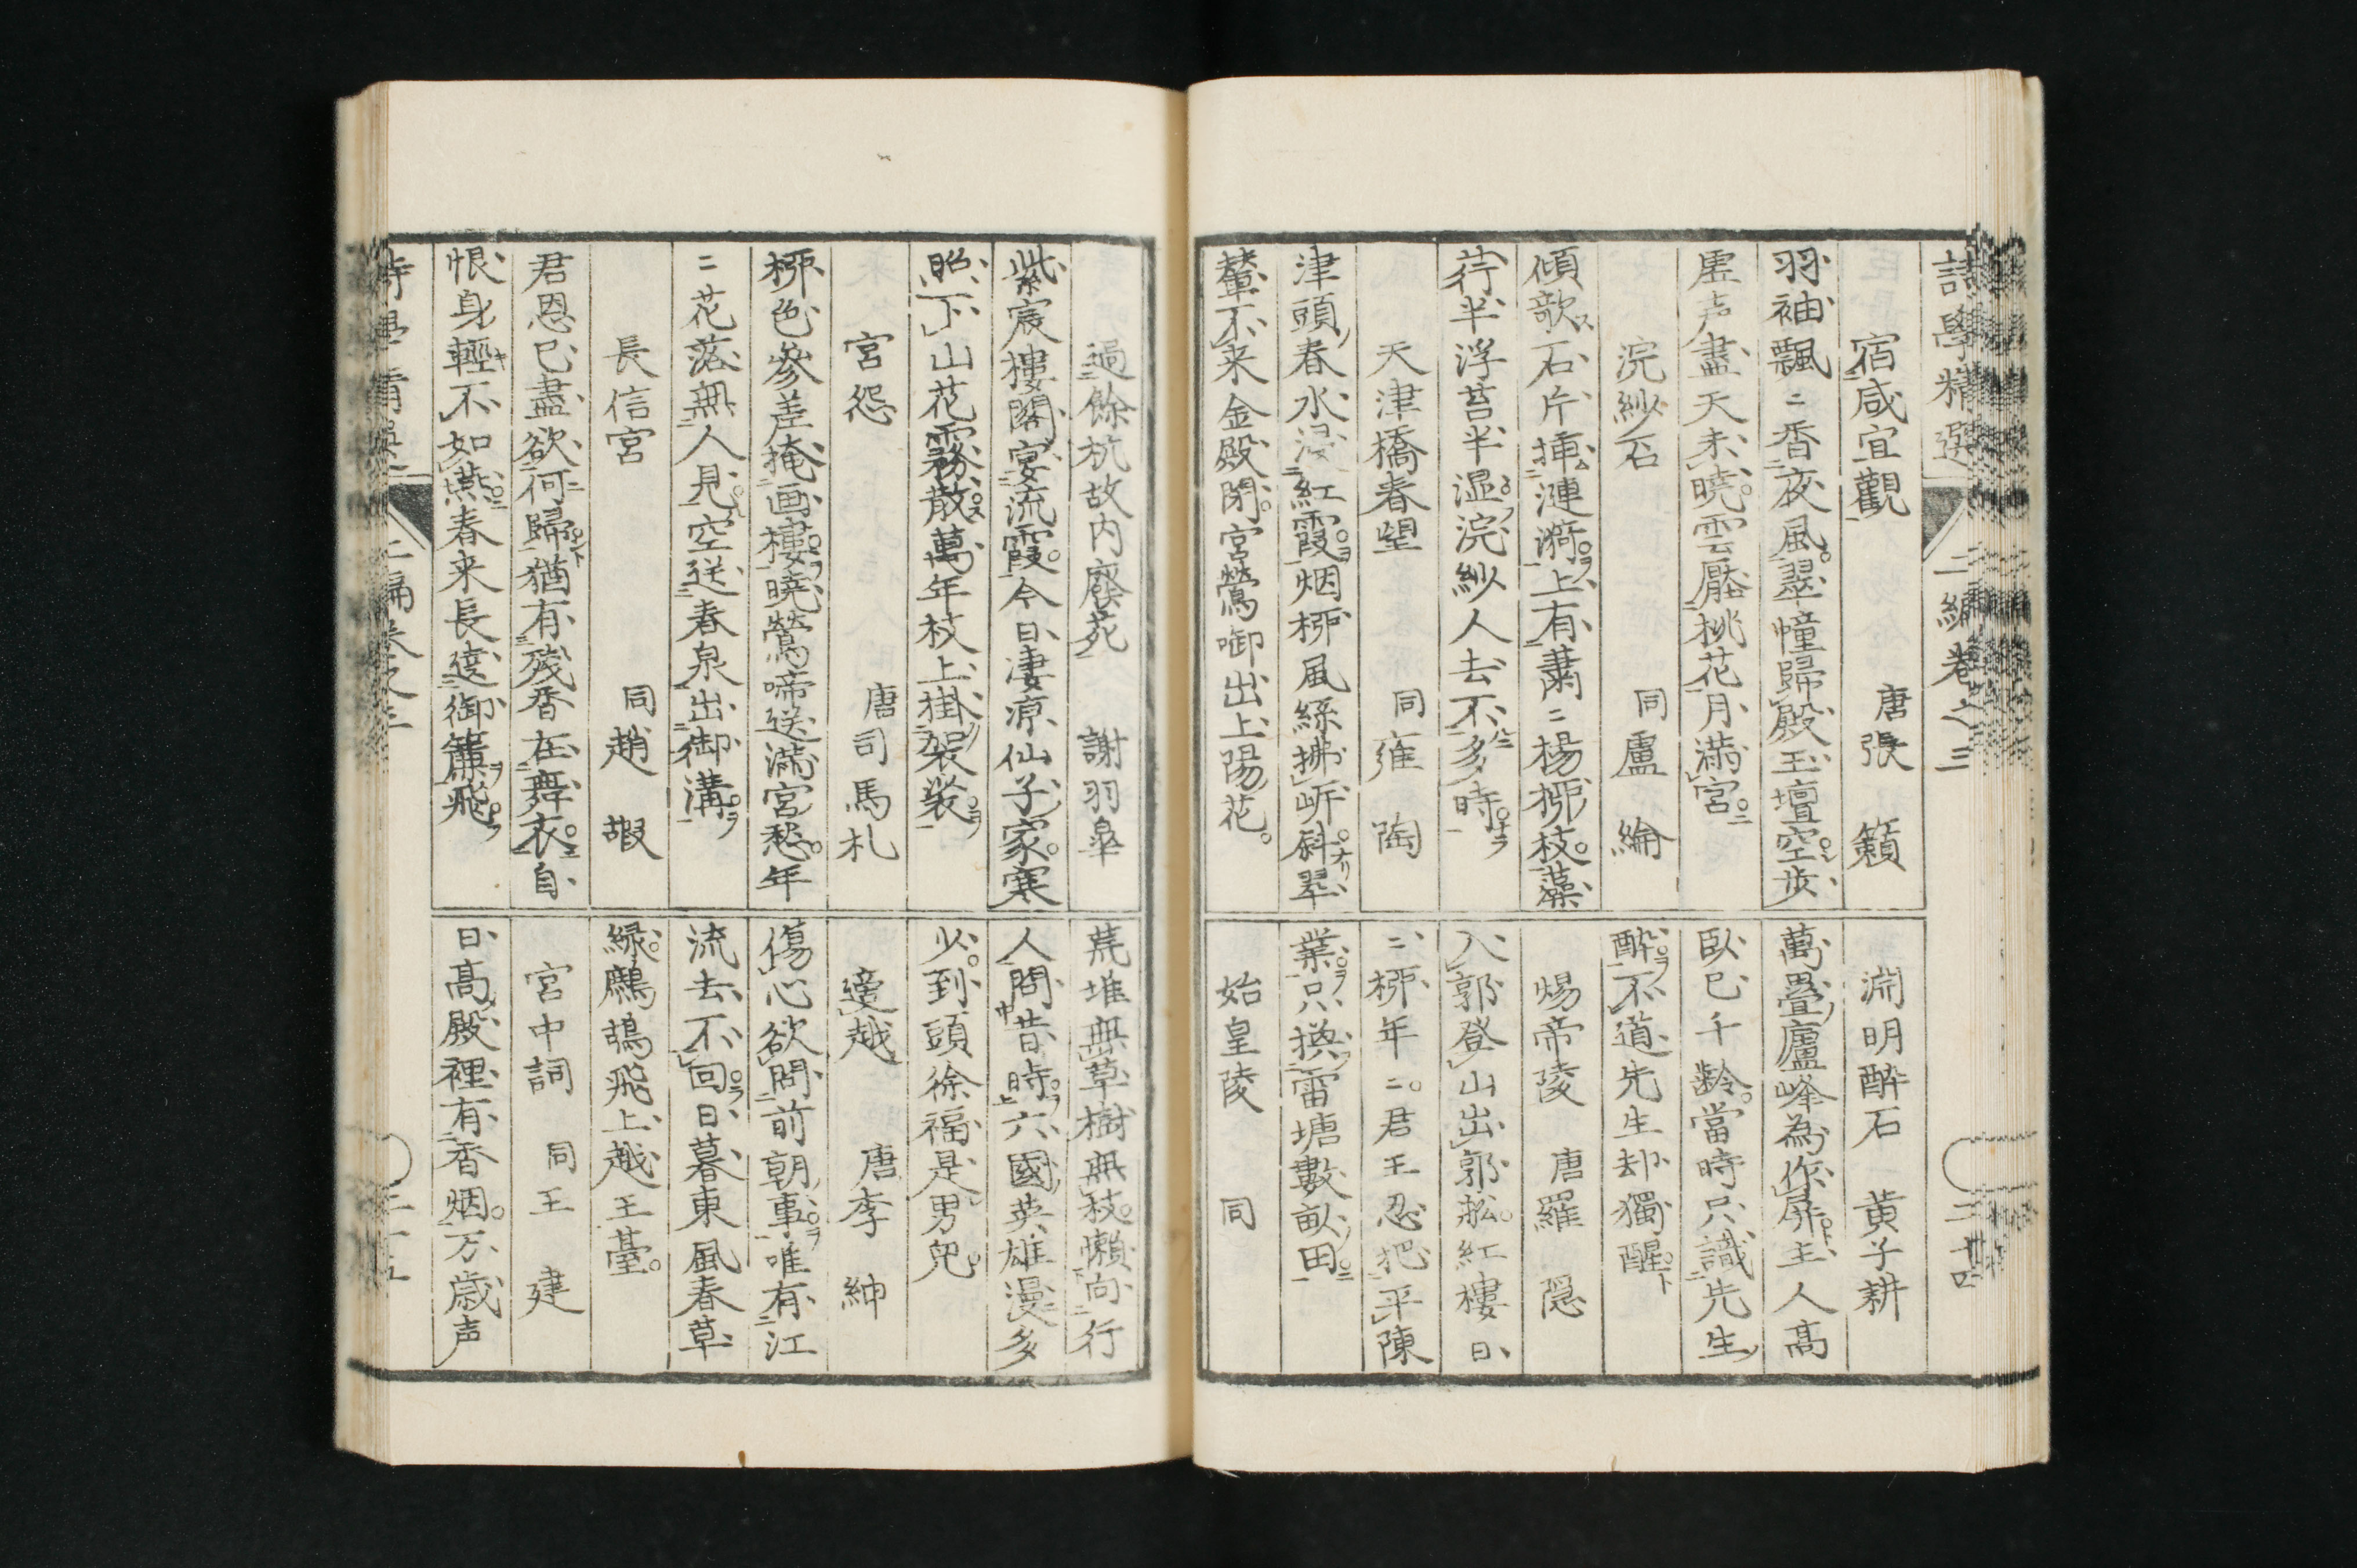 詩學精選 二編卷之三 二十四
宿咸宜觀 唐張籟
羽袖飄〻香夜風翠幢歸殿玉壇空步
虛声盡天未曉雲壓桃花月滿宮
浣紗石 同盧綸
傾欹石片揷漣漪上有肅〻楊柳枝藻
荇半浮苔半湿浣紗人去不多時
天津橋春望 同雍陶
津頭春水浸紅霞烟柳風絲拂岍斜翠
輦不来金殿閉宮鶯啣出上陽花
淵明醉石 黄子耕
萬疊廬峰為作屏主人高
臥已千齡當時只識先生
醉不道先生却獨醒
煬帝陵 唐羅隠
入郭登山出郭㴑紅樓日
〻柳年〻君王忍把平陳
業只換雷塘數畝田
始皇陵 同
荒堆無草樹無枝懶向行
人問昔時六國英雄漫多
少到頭徐福是男兒
過餘杭故内廢苑 謝羽皐
紫宸樓閣宴流霞今日凄凉仙子家寒
照下山花霧散萬年枝上掛袈裟
宮怨 唐司馬札
柳色參差掩画樓曉鶯啼送滿宮愁年
〻花落無人見空送春泉出御溝
長信宮 同趙嘏
君恩已盡欲何歸猶有殘香在舞衣自
恨身輕不如燕春来長遶御簾飛
適越 唐李紳
傷心欲問前朝事唯有江
流去不回日暮東風春草
緑鷓鴣飛上越王䑓
宮中詞 同王建
日高殿裡有香烟万歳声
二編卷之三